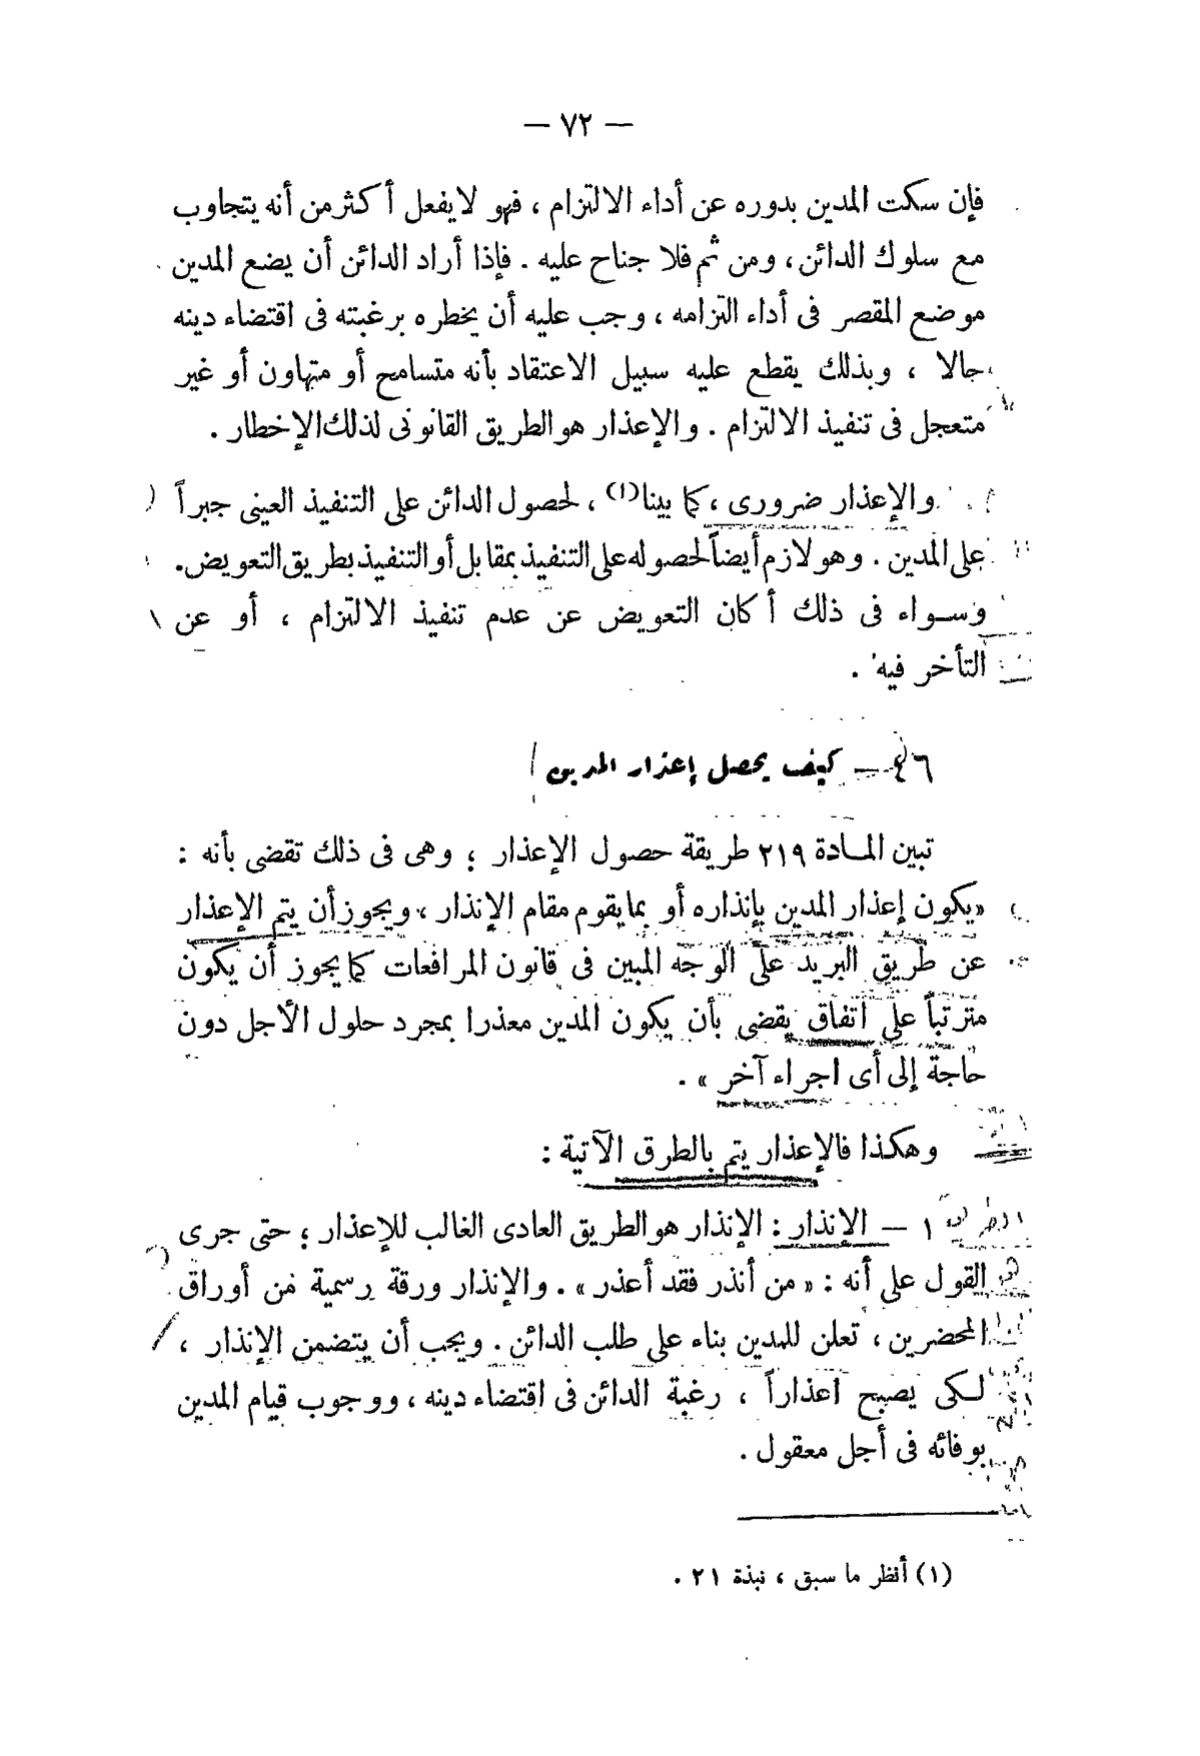 — ٧٢ —
فإن سكت المدين بدوره عن أداء الالتزام ، فهو لا يفعل أكثر من أنه يتجاوب
مع سلوك الدائن ، ومن ثم فلا جناح عليه . فإذا أراد الدائن أن يضع المدين
موضع المقصر فى أداء التزامه ، وجب عليه أن يخطره برغبته فى اقتضاء دينه
حالا ، وبذلك يقطع عليه سبيل الاعتقاد بأنه متسامح أو متهاون أو غير
متعجل فى تنفيذ الالتزام . والإعذار هو الطريق القانونى لذلك الإخطار .
والإعذار ضرورى ، كما بينا(١) ، لحصول الدائن على التنفيذ العينى جبراً
على المدين . وهو لازم أيضاً لحصوله على التنفيذ بمقابل أو التنفيذ بطريق التعويض .
وسواء فى ذلك أكان التعويض عن عدم تنفيذ الالتزام ، أو عن
التأخر فيه .
٤٦ — كيف يحصل إعذار المدين
تبين المادة ٢١٩ طريقة حصول الإعذار ؛ وهى فى ذلك تقضى بأنه :
« يكون إعذار المدين بإنذاره أو بما يقوم مقام الإنذار ، ويجوز أن يتم الإعذار
عن طريق البريد على الوجه المبين فى قانون المرافعات كما يجوز أن يكون
مترتباً على اتفاق يقضى بأن يكون المدين معذرا بمجرد حلول الأجل دون
حاجة إلى أى اجراء آخر » .
وهكذا فالإعذار يتم بالطرق الآتية :
١ — الإنذار : الإنذار هو الطريق العادى الغالب للإعذار ؛ حتى جرى
القول على أنه : « من أنذر فقد أعذر » . والإنذار ورقة رسمية من أوراق
المحضرين ، تعلن للمدين بناء على طلب الدائن . ويجب أن يتضمن الإنذار ،
لكى يصبح اعذاراً ، رغبة الدائن فى اقتضاء دينه ، ووجوب قيام المدين
بوفائه فى أجل معقول .
(١) أنظر ما سبق ، نبذة ٢١ .